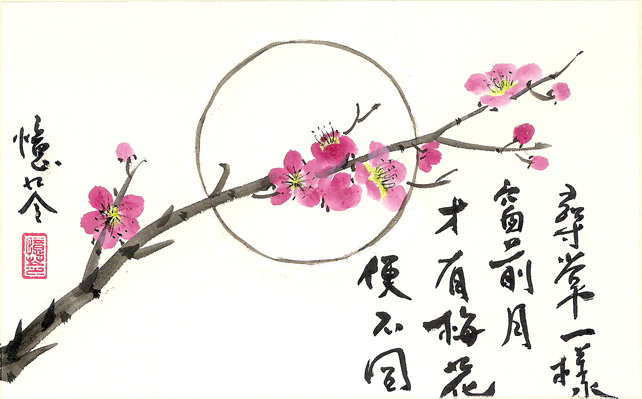 尋常一樣
窗前月
才有梅花
便不同
憶